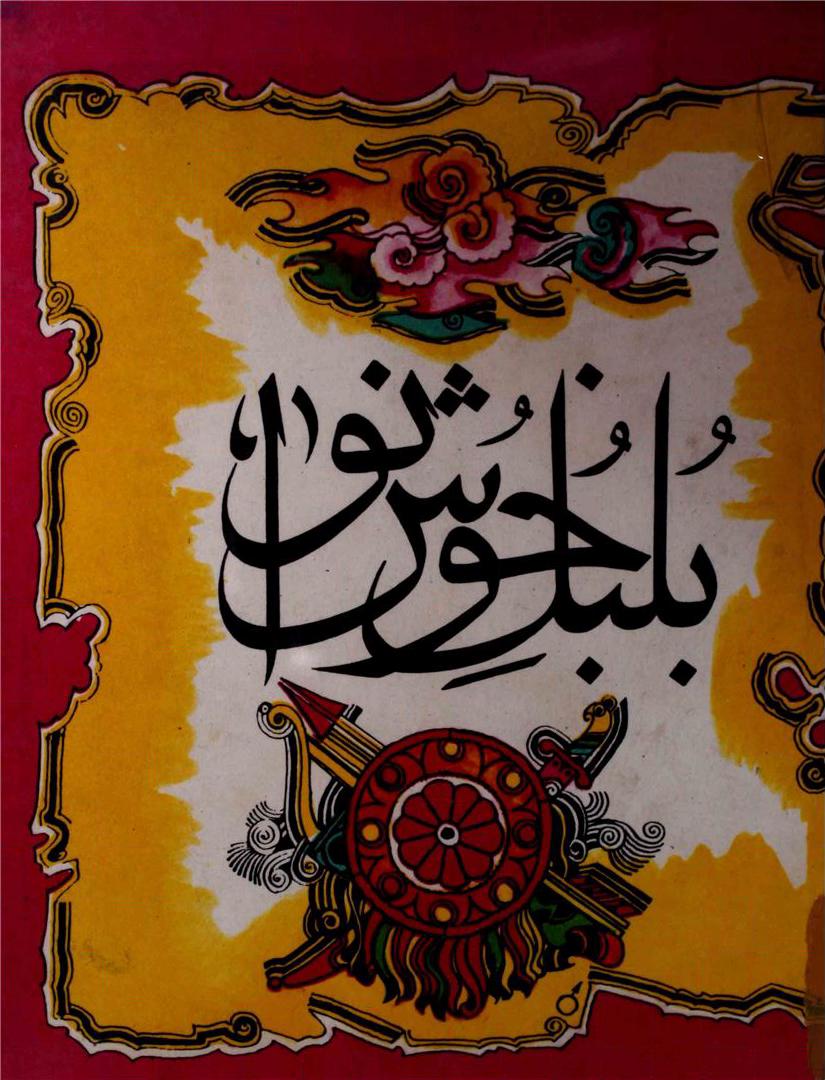 بُلبُلِ خوُش نوا